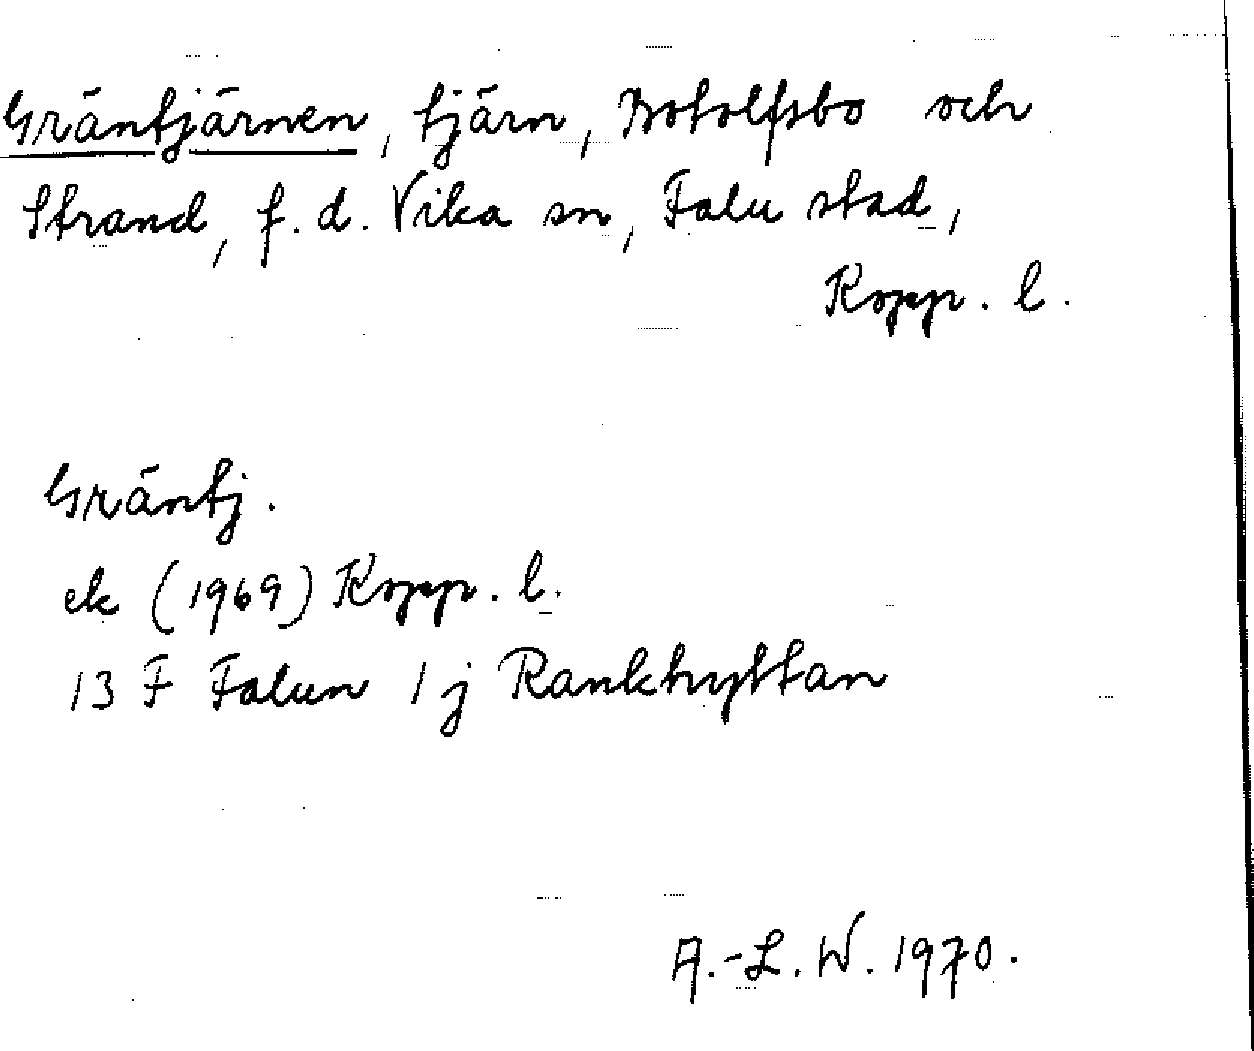 Gräntjärnen, tjärn, Botolfsbo och
Strand, f.d. Vika sn, Falu stad,
Kopp. l.
Gräntj.
ek (1969) Kopp. l.
13 F Falun 1 j Rankhyttan
A.-L. W. 1970.